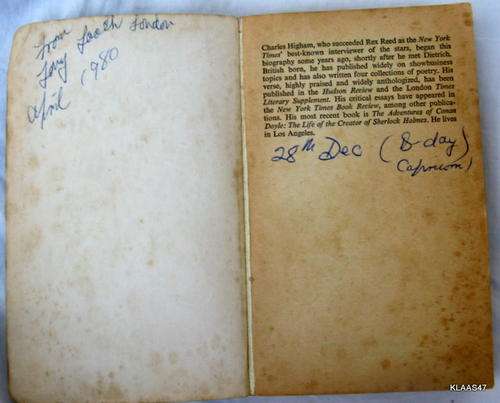 From
Terry Leech London
April 1980
Charles Higham, who succeeded Rex Reed as the New York
Times' best-known interviewer of the stars, began this
biography some years ago, shortly after he met Dietrich.
British born, he has published widely on showbusiness
topics and has also written four collections of poetry. His
verse, highly praised and widely anthologized, has been
published in the Hudson Review and the London Times
Literary Supplement. His critical essays have appeared in
the New York Times Book Review, among other publica-
tions. His most recent book is The Adventures of Conan
Doyle: The Life of the Creator of Sherlock Holmes. He lives
in Los Angeles.
28th Dec (B-day)
Capricorn)
KLAAS47